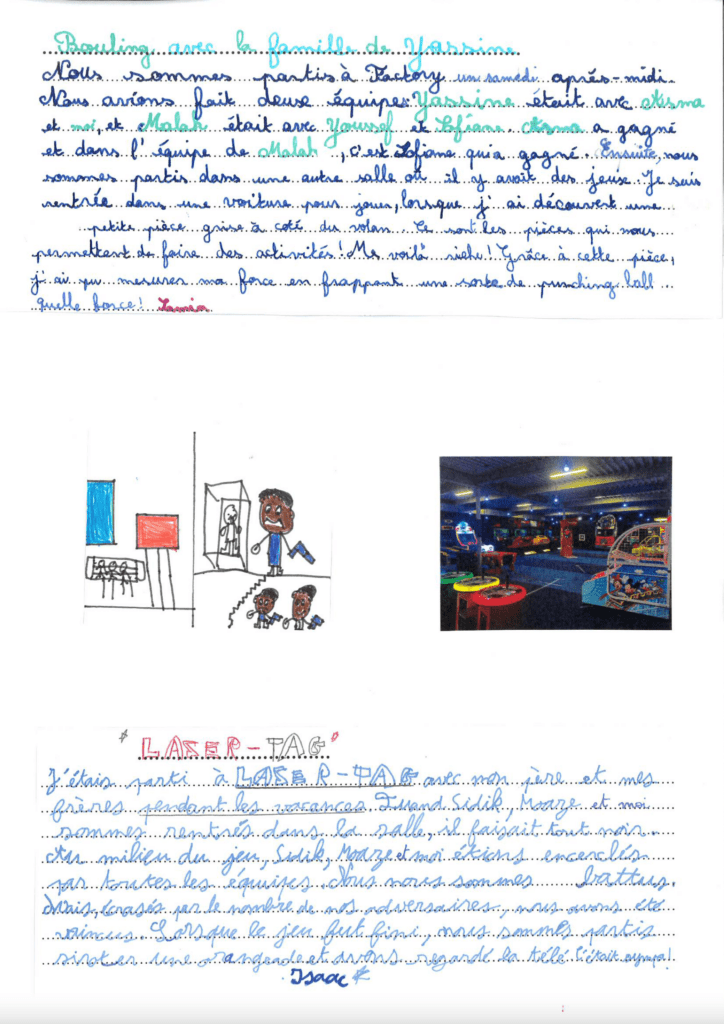 Bouling avec la famille de Yassine
Nous sommes partis à Factory un samedi après-midi.
Nous avions fait deux équipes Yassine était avec Asma
et moi, et Malak était avec Youssef et Sofiane. Asma a gagné
et dans l'équipe de Malak, c'est Sofiane qui a gagné. Ensuite, nous
sommes partis dans une autre salle où il y avait des jeux. Je suis
rentrée dans une voiture pour jouer, lorsque j'ai découvert une
petite pièce grise à coté du volan. Ce sont les pièces qui nous
permettent de faire des activités! Me voilà riche! Grâce à cette pièce,
j'ai pu mesurer ma force en frappant une sorte de punching ball
quelle force! Lamia
LASER-TAG
J'étais parti à LASER-TAG avec mon père et mes
frères pendant les vacances. Quand Sidik, Moaze et moi
sommes rentrés dans la salle, il faisait tout noir.
Au milieu du jeu, Sidik, Moaze et moi étions encerclés
par toutes les équipes. Nous nous sommes battus.
Mais, écrasés par le nombre de nos adversaires, nous avons été
vaincus. Lorsque le jeu fut fini, nous sommes partis
siroter une orangeade et avons regardé la télé c'était sympa!
Isaac